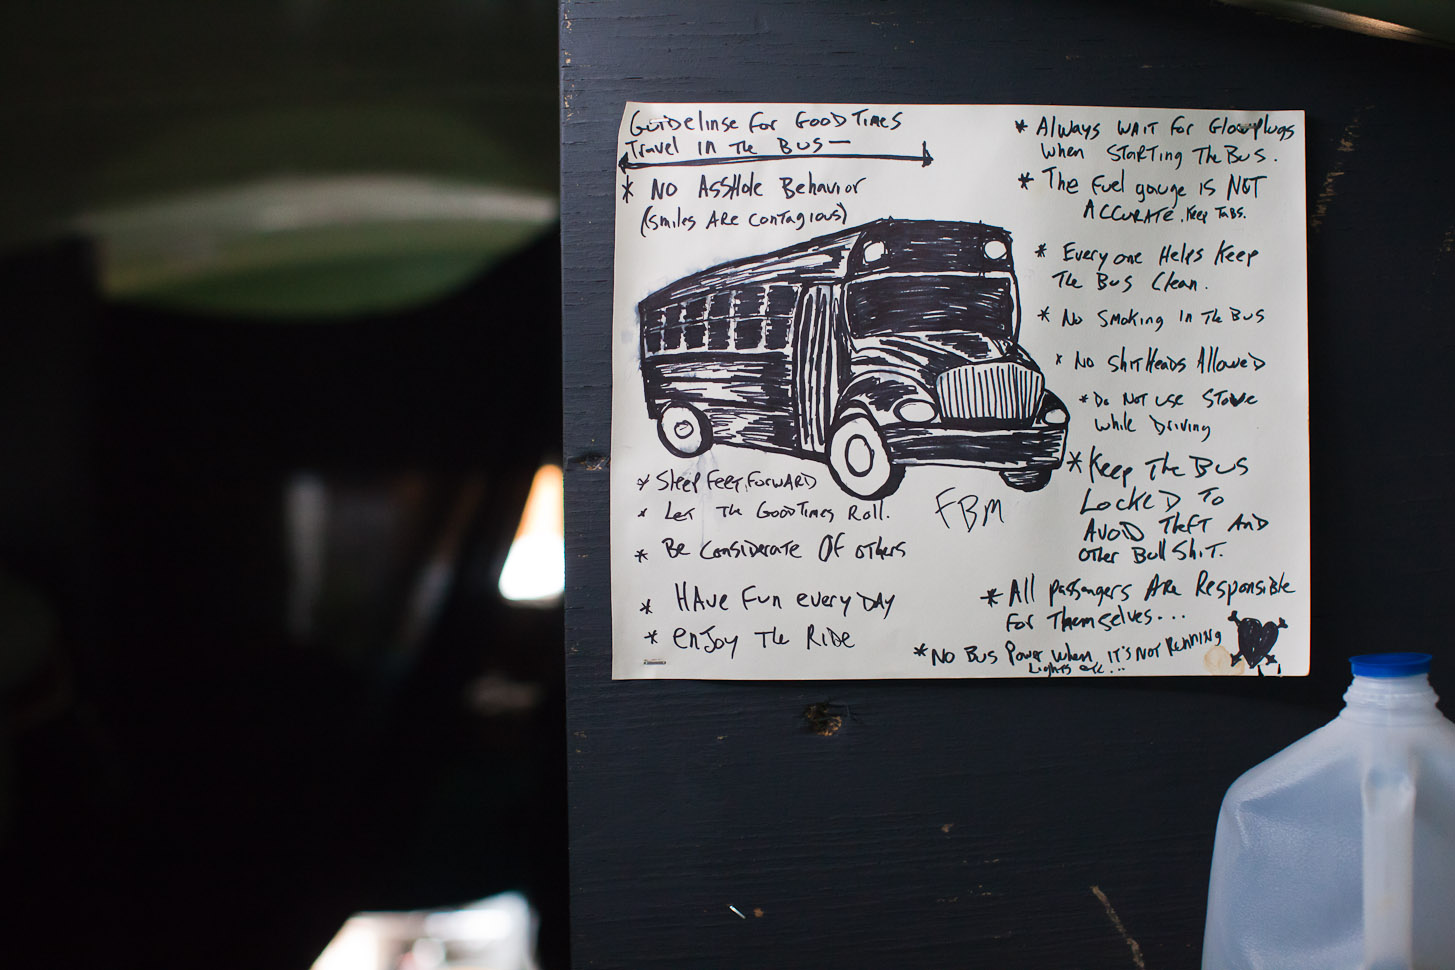 Guidelinse for GOOD TIMES
Travel IN The BUS—
* NO ASSHole Behavior
(smiles ARe contagious)
* Sleep feet, forward
* Let The GOODTimes Roll.
* Be Considerate Of others
* HAve Fun every DAY
* enJoy The RIDe
FBM
* Always WAIT for Glowplugs
when STARTING The Bus.
* The fuel gauge IS NOT
ACCURATE, Keep Tabs.
* Everyone Helps Keep
The Bus Clean.
* No Smoking In The Bus
* No ShitHeads Allowed
* Do Not use Stove
while Driving
* Keep The Bus
Locked To
AvoiD Theft And
other Bull Shit.
* All passangers Are Responsible
for Themselves...
* No Bus Power when IT's Not Running
Lights etc...